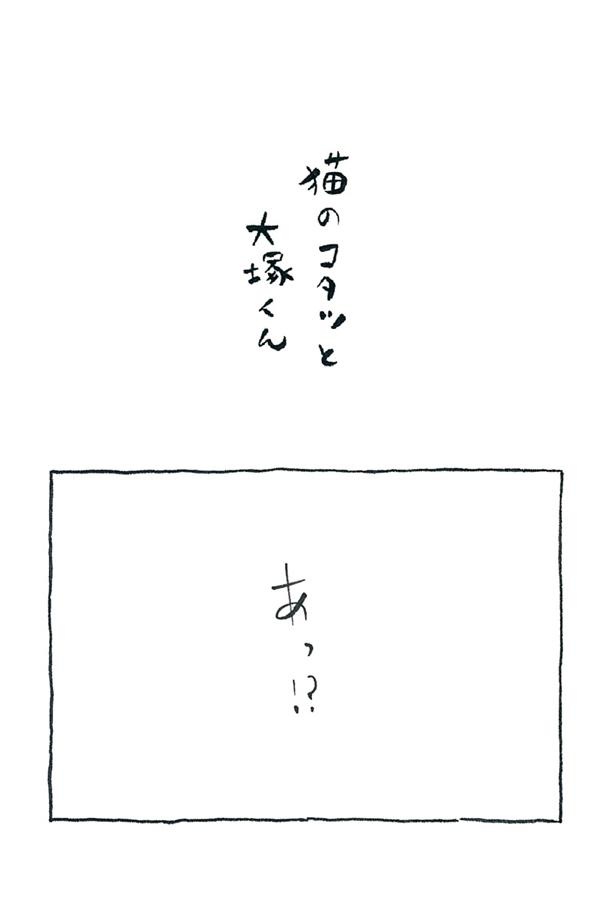 猫のコタツと
大塚くん
あっ!?